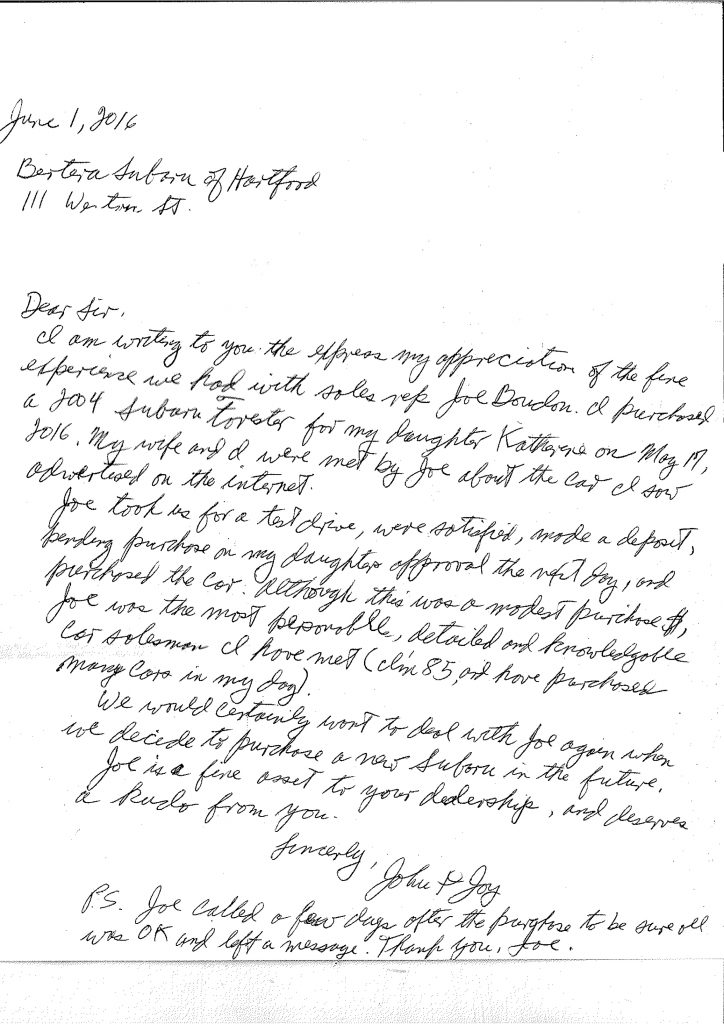 June 1, 2016
Bertera Subaru of Hartford
111 Weston St.
Dear Sir.
I am writing to you the express my appreciation of the fine
experience we had with sales rep Joe Boudon. I purchased
a 2004 Subaru Forester for my daughter Katherene on May 17,
2016. My wife and I were met by Joe about the car I saw
advertised on the internet.
Joe took us for a test drive, were satisfied, made a deposit,
pending purchase on my daughters approval the next day, and
purchased the car. Although this was a modest purchase $,
Joe was the most personable, detailed and knowledgable
car salesman I have met (I'm 85, and have purchased
many cars in my day).
We would certainly want to deal with Joe again when
we decide to purchase a new Subaru in the future.
Joe is a fine asset to your dealership, and deserves
a Kudo from you.
Sincerly,
John & Joy
P.S. Joe called a few days after the purchase to be sure all
was OK and left a message. Thank you, Joe.